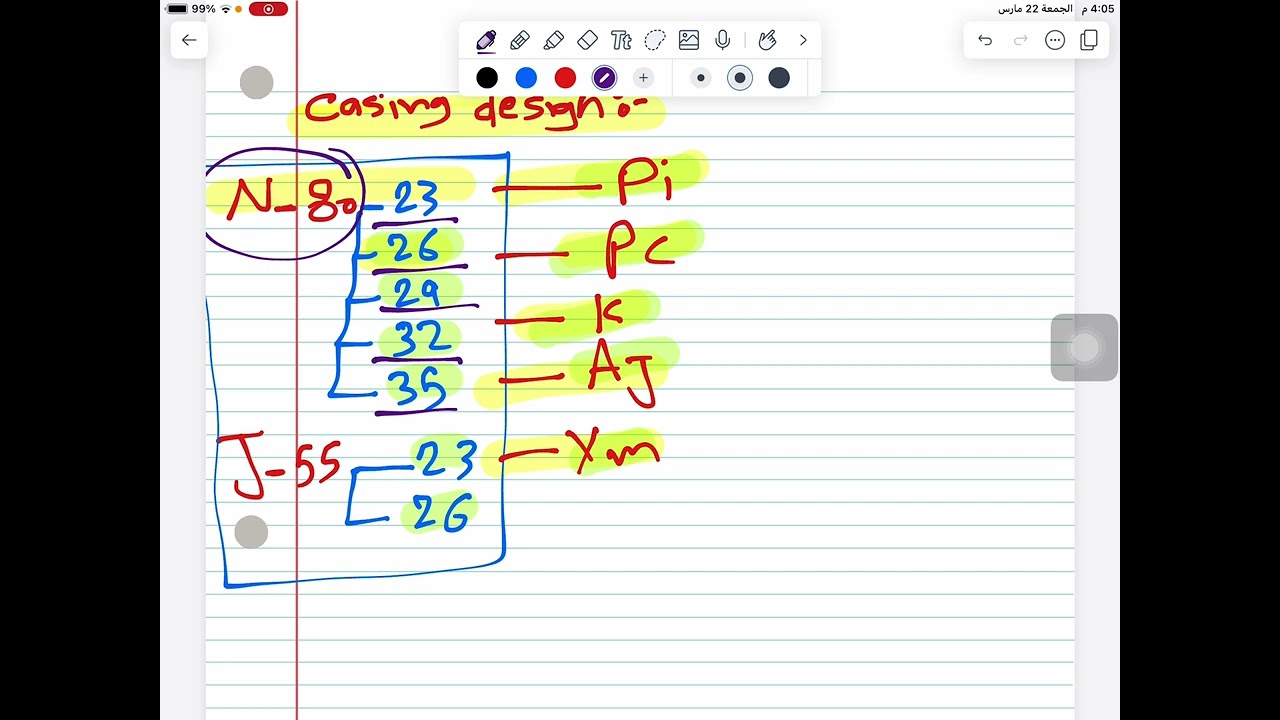 99%
4:05 م الجمعة 22 مارس
Tt
Casing design:-
N-80 23 Pi
26 Pc
29 K
32 AJ
35
J-55 23 Xm
26